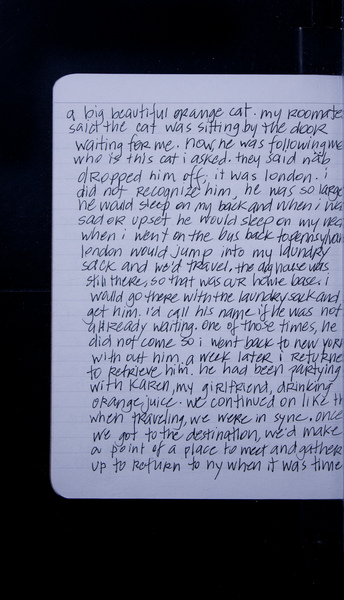 a big beautiful orange cat. my roomates
said the cat was sitting by the door
waiting for me. now, he was following me
who is this cat i asked. they said nab
dropped him off; it was london. i
did not recognize him, he was so large
he would sleep on my back and when i was
sad or upset he would sleep on my neck
when i went on the bus back to pennsylvan
london would jump into my laundry
sack and we'd travel. the day house was
still there, so that was our home base. i
would go there with the laundry sack and
get him. i'd call his name if he was not
allready waiting. one of those times, he
did not come so i went back to new york
with out him. a week later i returne
to retrieve him. he had been partying
with karen, my girlfriend, drinking
orange juice. we continued on like th
when traveling, we were in sync. once
we got to the destination, we'd make
a point of a place to meet and gather
up to return to ny when it was time